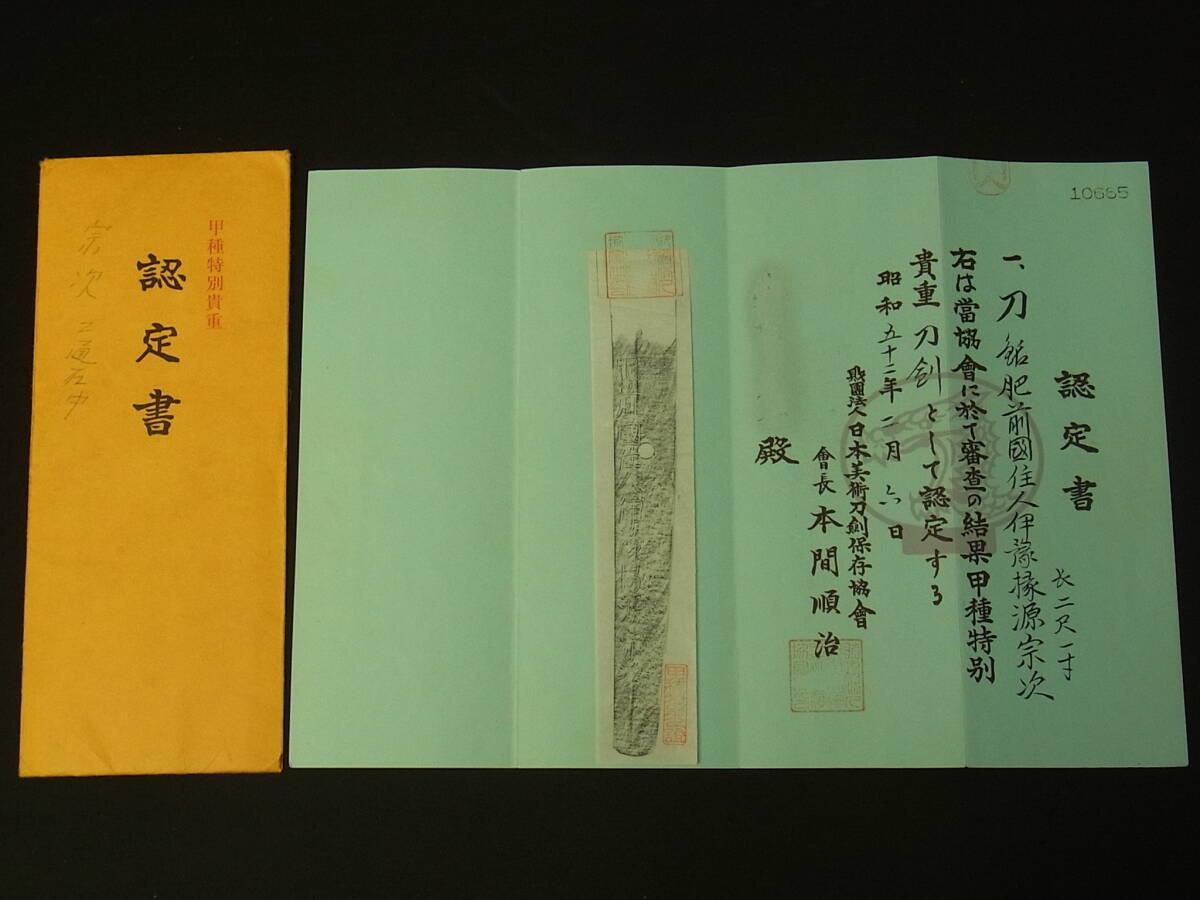 甲種特別貴重
認定書
宗次
10665
認定書
一、刀 銘肥前國住人伊豫掾源宗次
長二尺一寸
右は當協會に於て審査の結果甲種特別
貴重刀剣として認定する
昭和五十二年二月六日
財團法人日本美術刀剣保存協會
會長 本間順治
殿